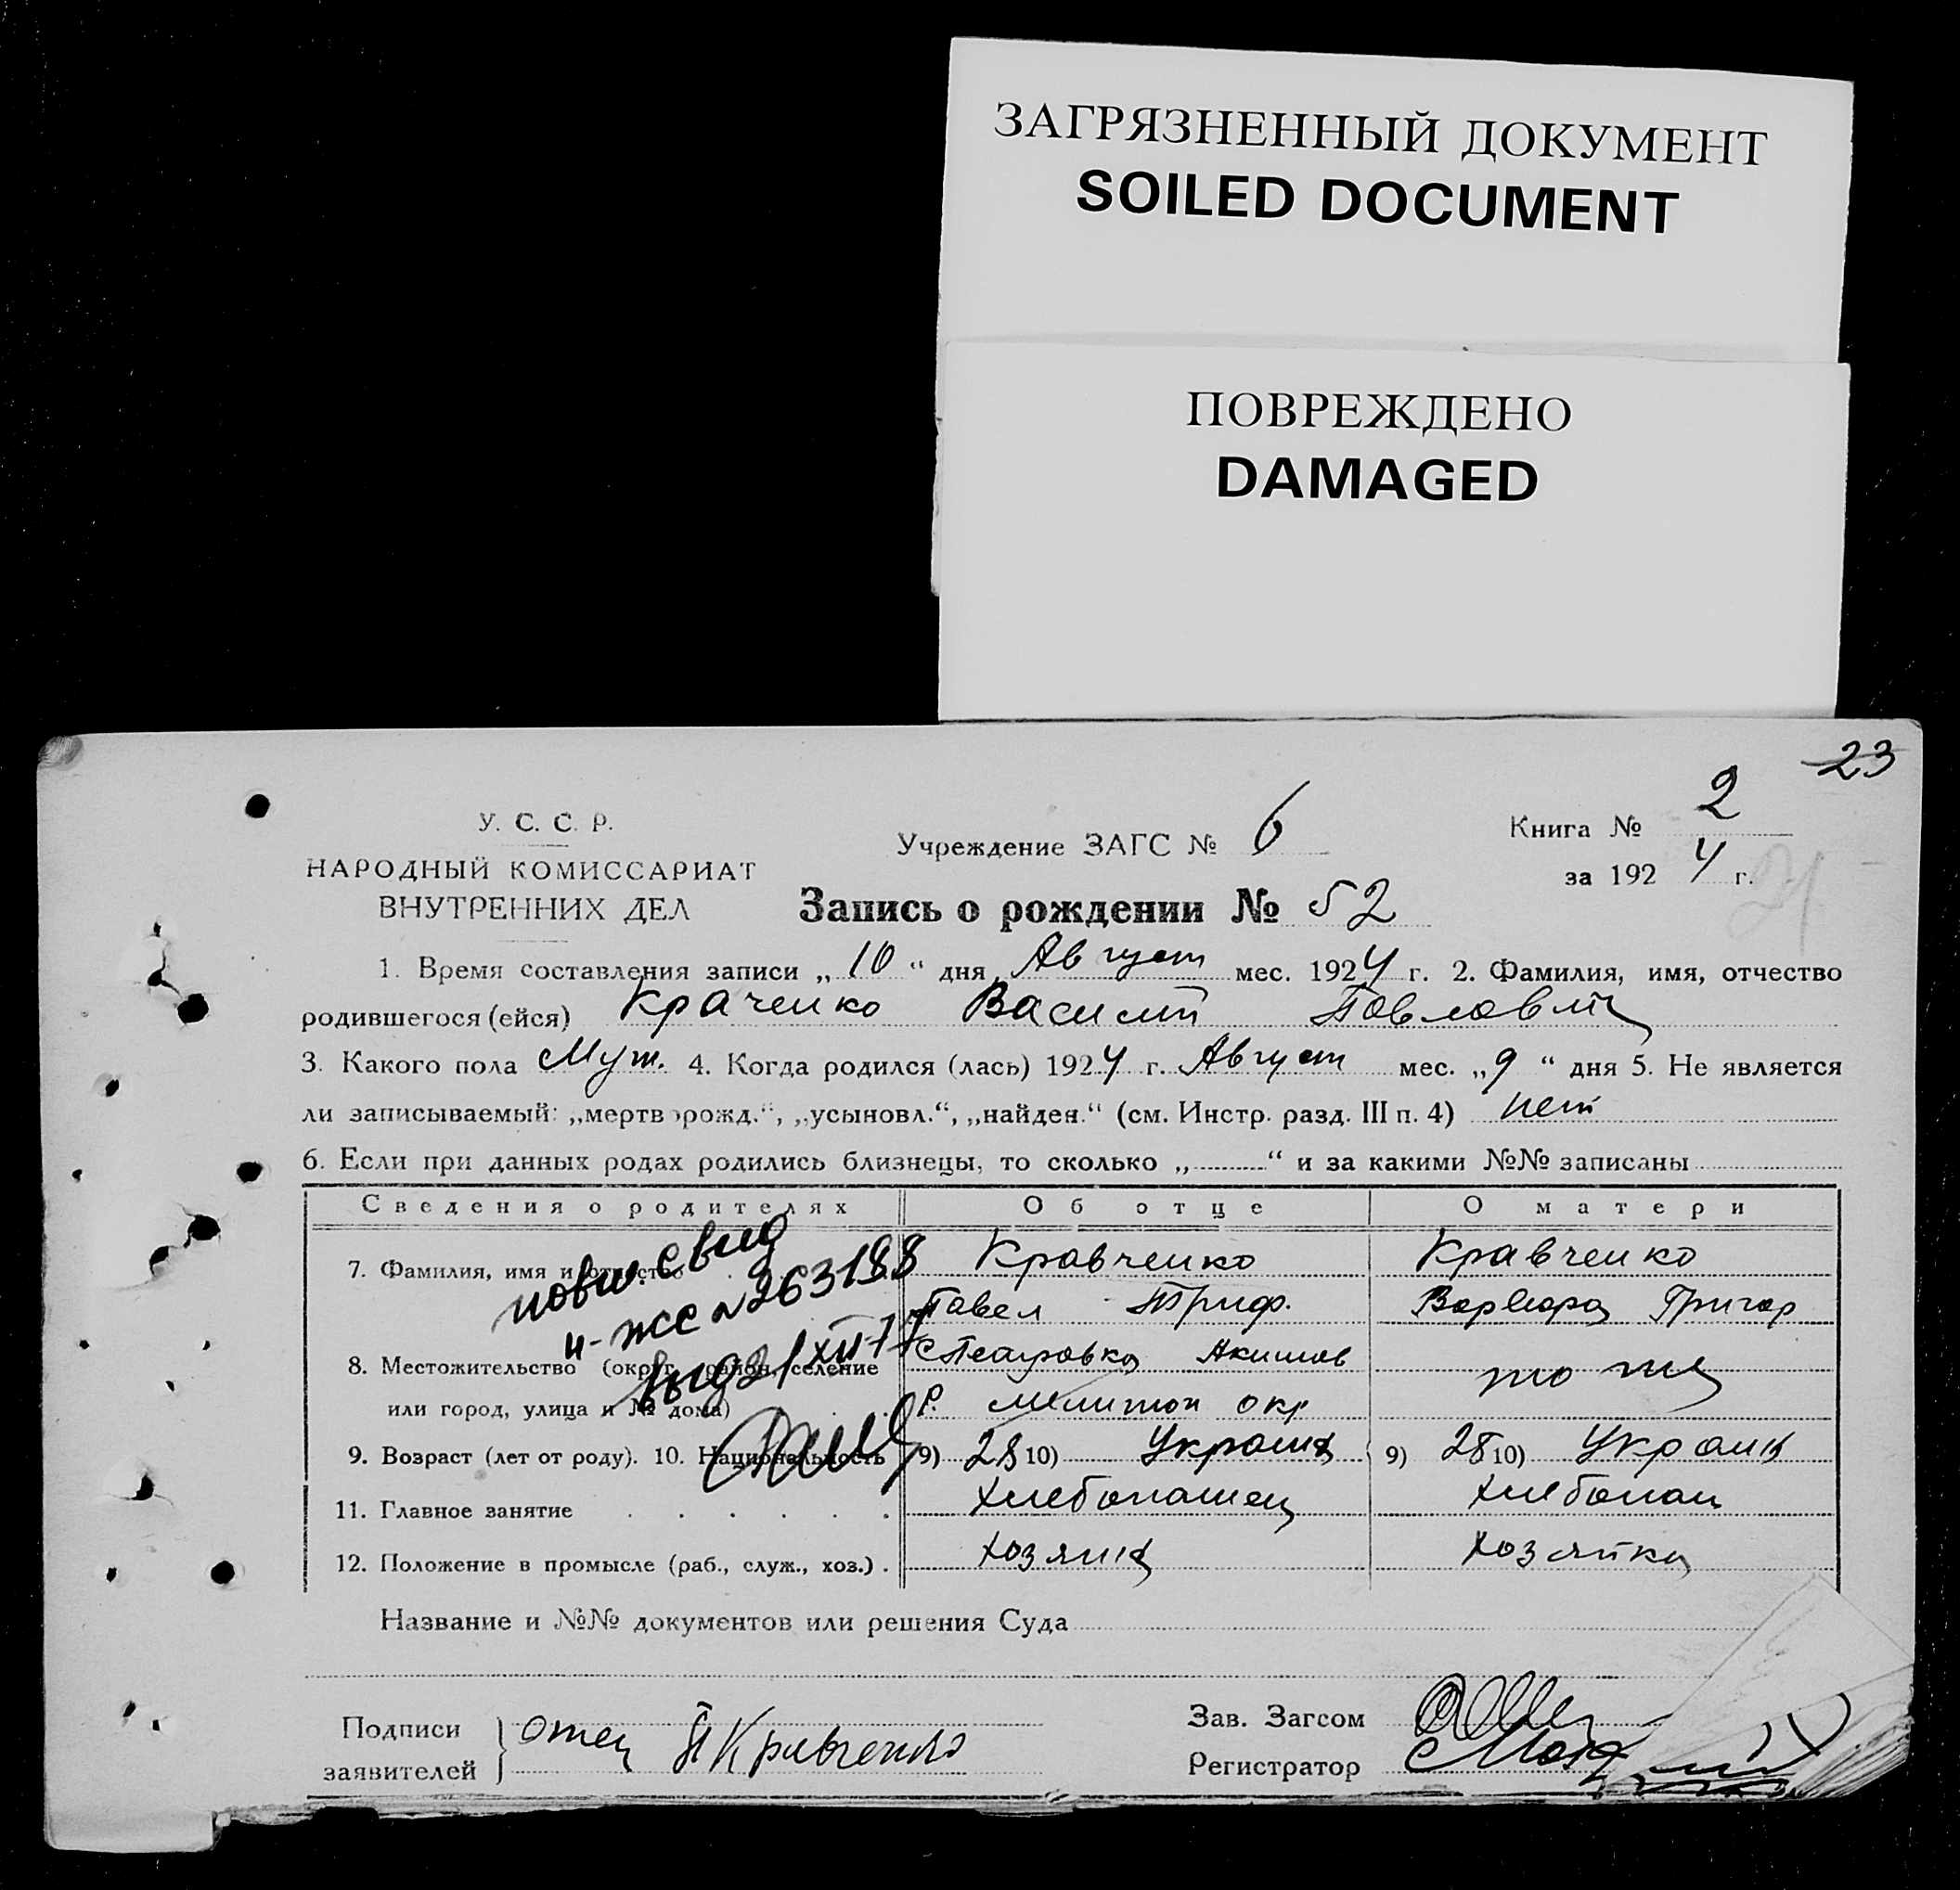 ЗАГРЯЗНЕННЫЙ ДОКУМЕНТ
SOILED DOCUMENT
ПОВРЕЖДЕНО
DAMAGED
23
У. С. С. Р.
НАРОДНЫЙ КОМИССАРИАТ
ВНУТРЕННИХ ДЕЛ
Учреждение ЗАГС № 6
Книга № 2
за 1924 г.
Запись о рождении № 52
1. Время составления записи „10“ дня Август мес. 1924 г. 2. Фамилия, имя, отчество
родившегося (ейся) Краченко Василий Павлович
3. Какого пола Муж. 4. Когда родился (лась) 1924 г. Август мес. „9“ дня 5. Не является
ли записываемый: „мертворожд.“, „усыновл.“, „найден.“ (см. Инстр. разд. III п. 4) нет
6. Если при данных родах родились близнецы, то сколько „..........“ и за какими №№ записаны
Сведения о родителях Об отце О матери
7. Фамилия, имя и отчество Кравченко Кравченко
Павел Триф. Варвара Григор
повт. свид
н-жс № 263188
8. Местожительство (округ, район, селение
или город, улица и № дома)
Акимов
Р. Мелитоп окр
то же
9. Возраст (лет от роду). 10. Национальность 9) 28 10) Украин 9) 28 10) Украин
11. Главное занятие . . . . . . Хлебопашец Хлебопаш
12. Положение в промысле (раб., служ., хоз.) . Хозяин Хозяйка
Название и №№ документов или решения Суда
Подписи
заявителей
отец П Кравченко
Зав. Загсом
Регистратор